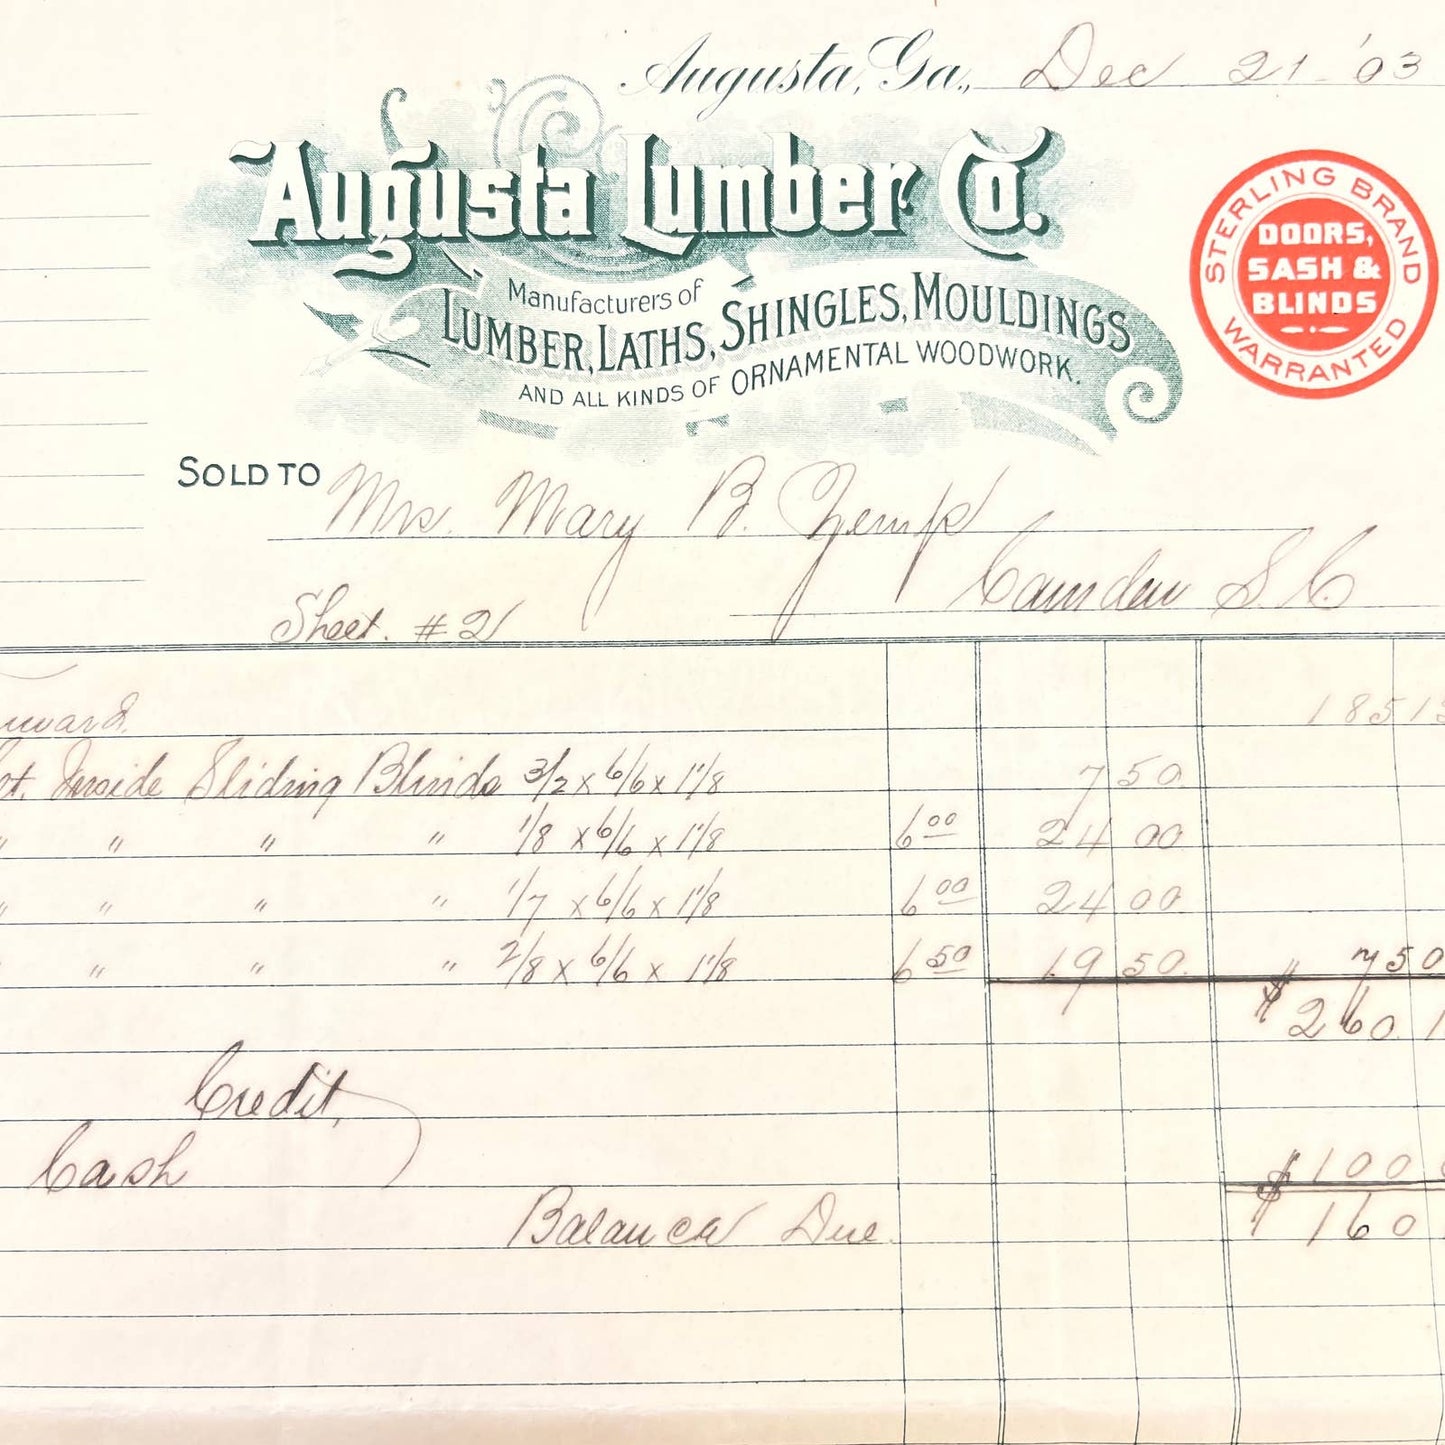 Augusta, Ga., Dec 21 - '03
Augusta Lumber Co.
Manufacturers of
Lumber, Laths, Shingles, Mouldings
and all kinds of Ornamental Woodwork.
STERLING BRAND
DOORS,
SASH &
BLINDS
WARRANTED
Sold to Mrs. Mary B. Zemp
Camden S. C
Sheet. #2
18513
Inside Sliding Blinds 3/2 x 6/6 x 1 1/8 7 50
" " " " 1/8 x 6/6 x 1 1/8 6 00 24 00
" " " " 1/7 x 6/6 x 1 1/8 6 00 24 00
" " " 2/8 x 6/6 x 1 1/8 6 50 19 50 750
$ 260 1
Credit,
Cash $ 100 0
Balance Due $ 160